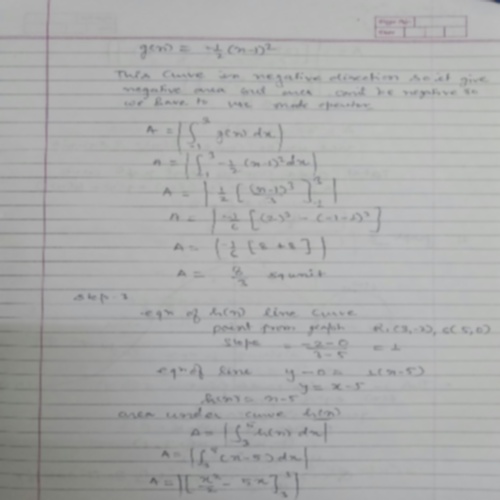 Page No.
Date
g(x) = -1/2 (x-1)²
This curve in negative direction so it give
negative area and area can't be negative so
we have to use mode operator
A = |∫₋₁³ g(x) dx|
A = |∫₋₁³ -1/2 (x-1)² dx|
A = | 1/2 [(x-1)³/3]₋₁³ |
A = | -1/6 [(2)³ - (-1-1)³]
A = (-1/6 [8+8])
A = 8/3 sq unit
step-3
eqn of h(x) line curve
point from graph (3,-2), (5,0)
slope = -2-0/3-5 = 1
eqn of line y-0 = 1(x-5)
y = x-5
h(x) = x-5
area under curve h(x)
A = |∫₃⁵ h(x) dx|
A = |∫₃⁵ (x-5) dx|
A = |[x²/2 - 5x]₃⁵|